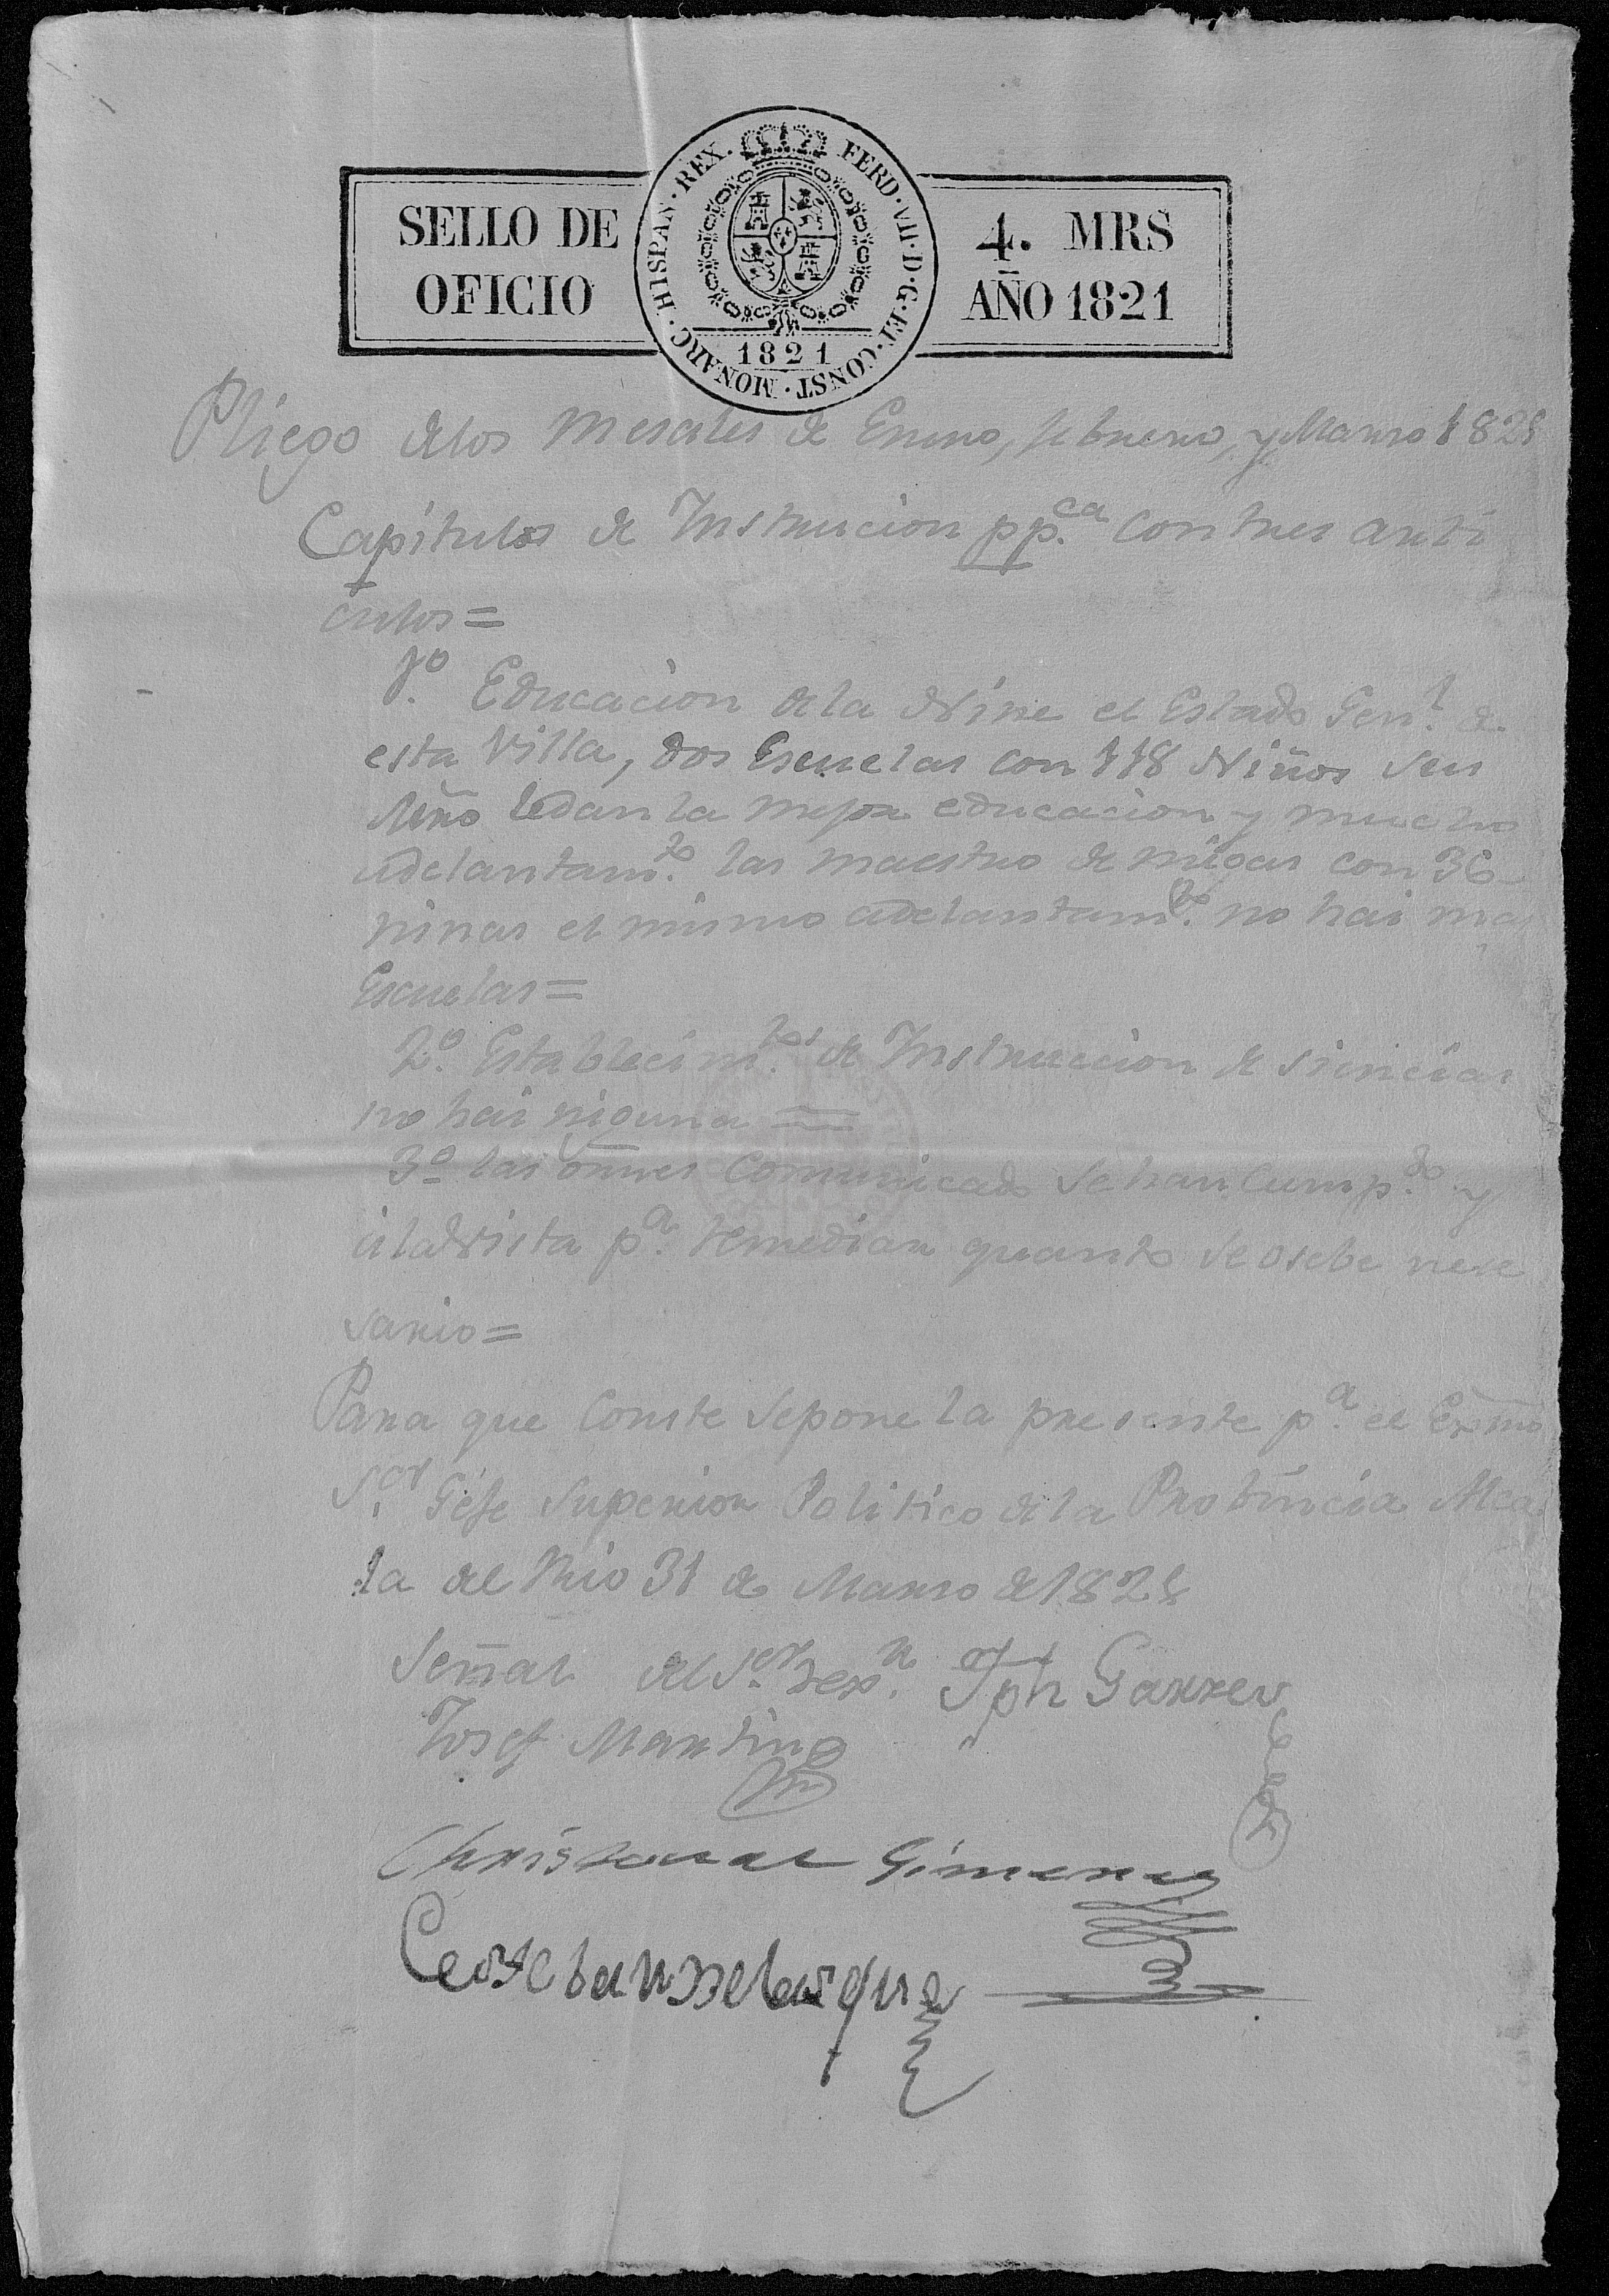 SELLO DE
OFICIO
HISPAN · REX · FERD · VII · D · G · ET · CONST · MONARC ·
1821
4. MRS
AÑO 1821
Pliego delos Mesales de Enero, febrero, y Marzo 1821
Capitulos de Instrucion pp.ca con tres arti
culos =
1.º Educacion dela Niñe el Estado Gen.l de
esta Villa, dos Escuelas con 118 Niños seu
ledan la mejor educacion y mucho
adelantam.to las maestro de migas con 36
ninas el mismo adelantam.to no hai ma
Escuelas =
2.º Establecim.tos de Instruccion de siencias
no hai niguna =
3.º las orñes comunicado se han cump.do y
ila vista p.a remediar quanto se osebe nese
sario =
Para que Conste se pone la presente p.a el Exmo
S.or Gefe Superior Politico dela Probincia Alca
la del Rio 31 de Marzo de 1821
Señal del S.or Jph Garrer
Josef Martin
Christoval Gimenez
Esteban Velasque